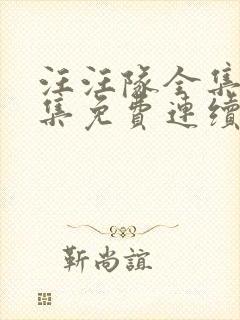 汪汪隊全集
集免費連續
靳尚誼